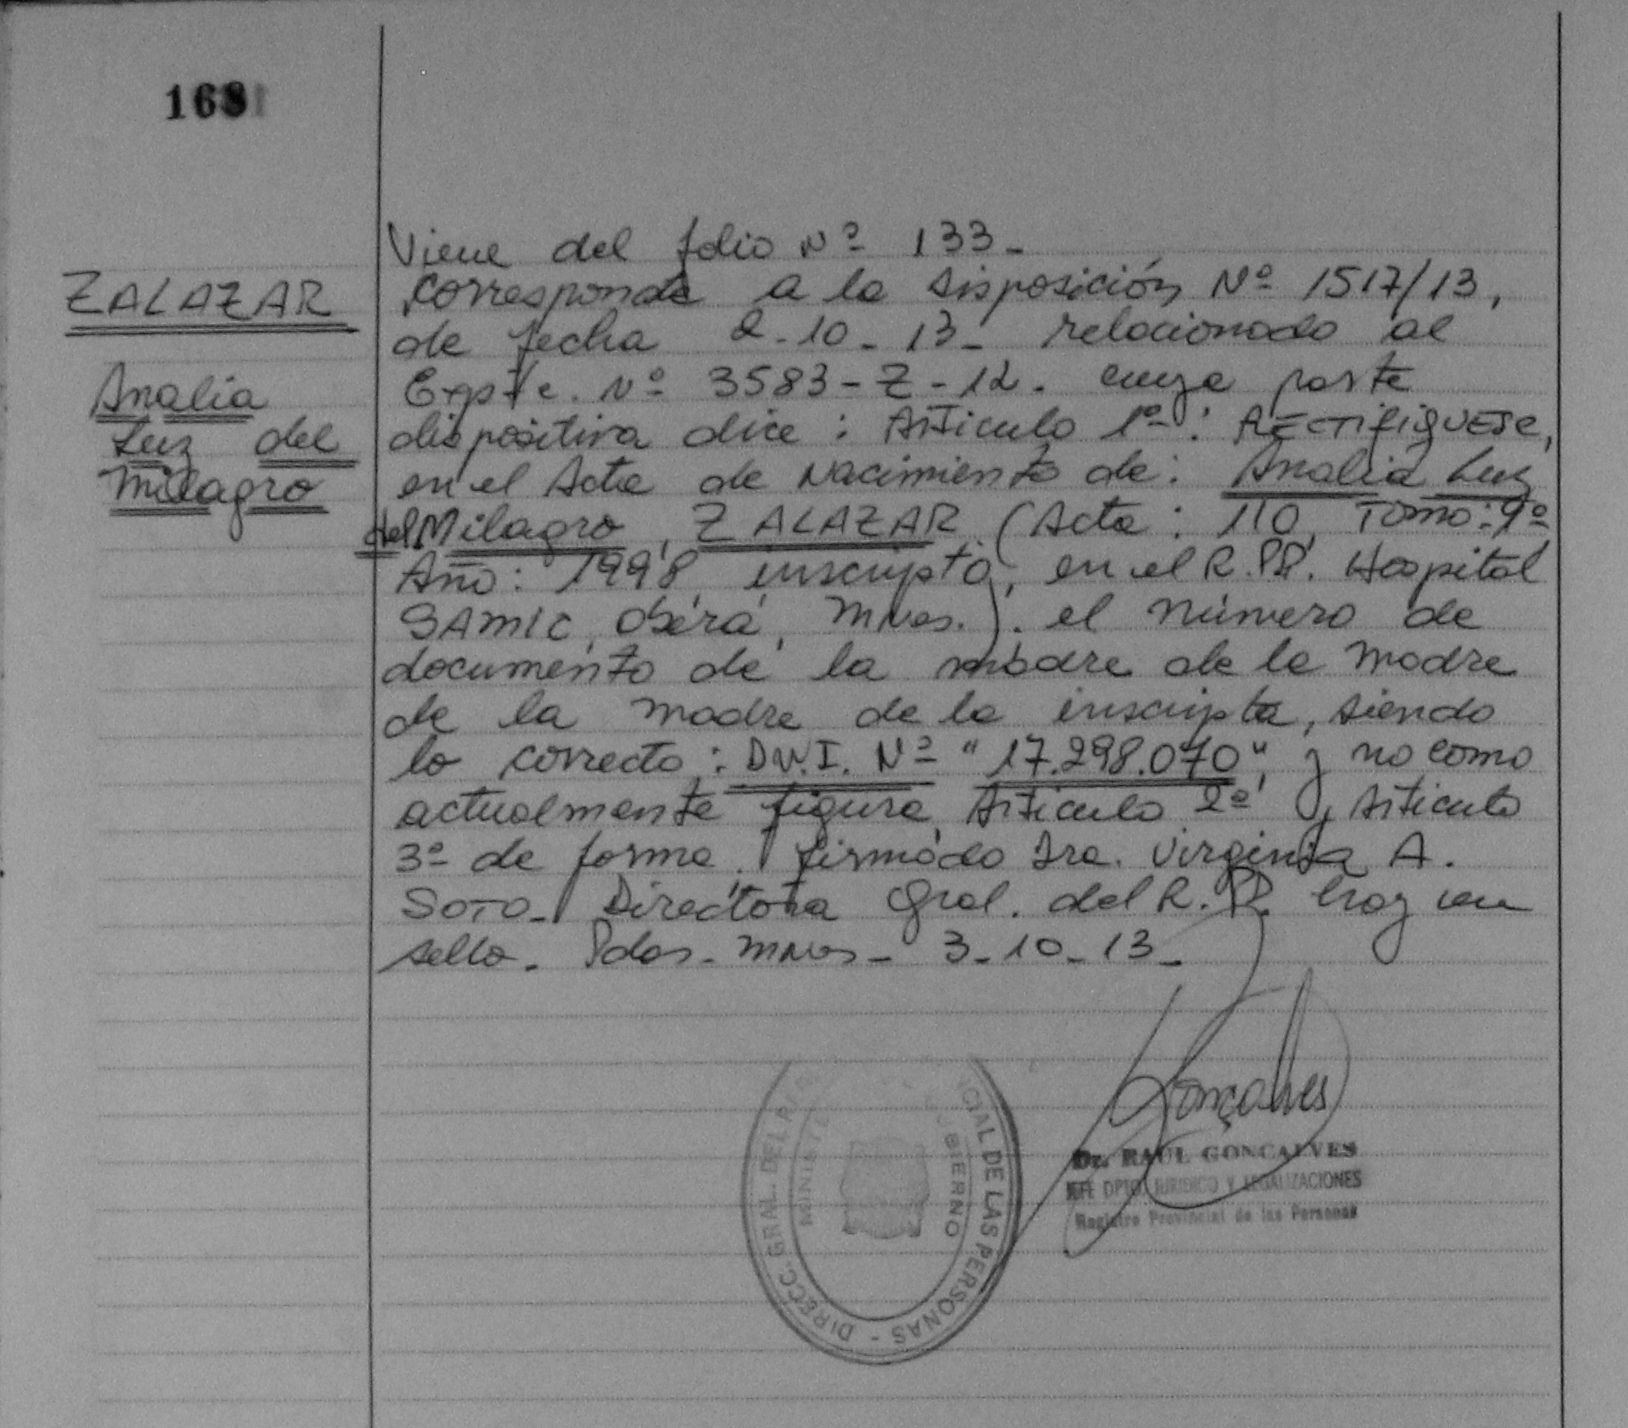 168
ZALAZAR
Analia
Luz del
Milagro
Viene del folio Nº 133-
corresponde a la disposición Nº 1517/13,
de fecha 2-10-13- relacionado al
Expte. Nº 3583-Z-12. cuya parte
dispositiva dice: Articulo 1º: RECTIFIQUESE,
en el Acta de Nacimiento de: Analia Luz
del Milagro, ZALAZAR (Acta: 110, Tomo: 9º
Año: 1998, inscripta, en el R.PP. Hospital
SAMIC, Oberá, Mnes.). el número de
documento de la madre de la madre
de la madre de la inscripta, siendo
lo correcto: D.N.I. Nº "17.298.070", y no como
actualmente figura, Articulo 2º y Articulo
3º de forma. firmado Dra. Virginia A.
SOTO- Directora Gral. del R.PP. hay un
sello- Pdas- Mnes- 3-10-13-
Gonçalves
Dr. RAUL GONCALVES
JEFE DPTO. JURIDICO Y LEGALIZACIONES
Registro Provincial de las Personas
DIRECC. GRAL. DEL CIAL DE LAS PERSONAS -
MINISTE BIERNO